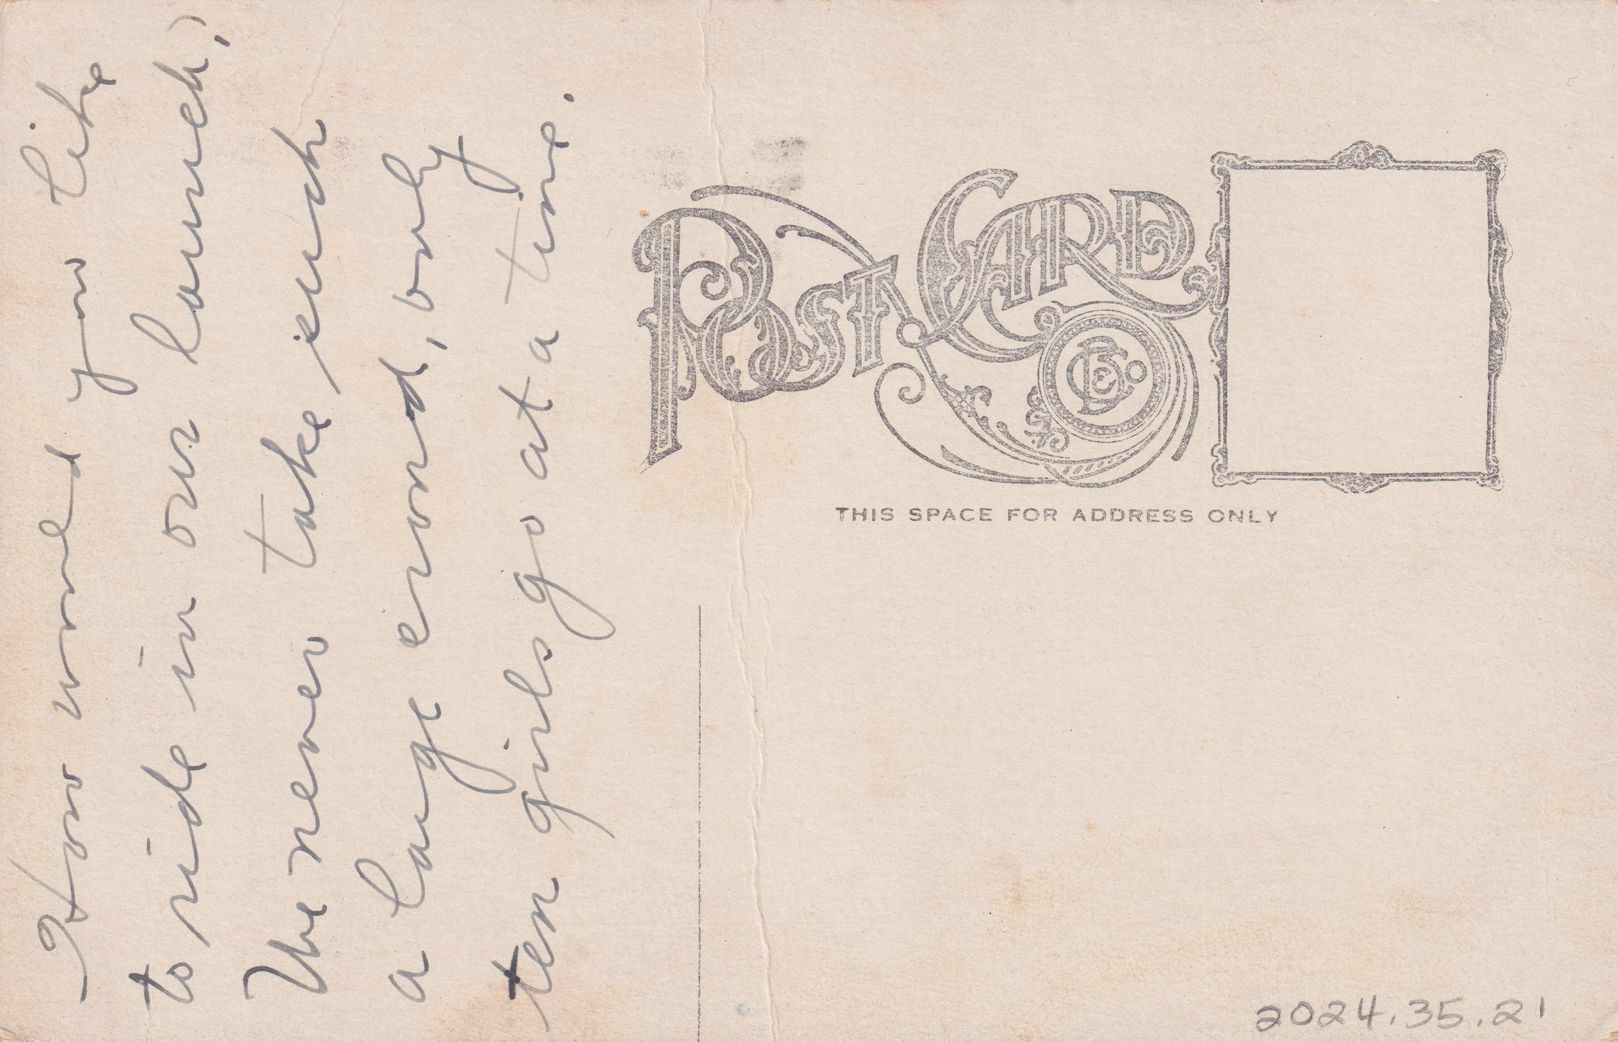 How would you like
to ride in our launch,
We never take such
a large crowd, only
ten girls go at a time.
POST CARD
THIS SPACE FOR ADDRESS ONLY
2024.35.21